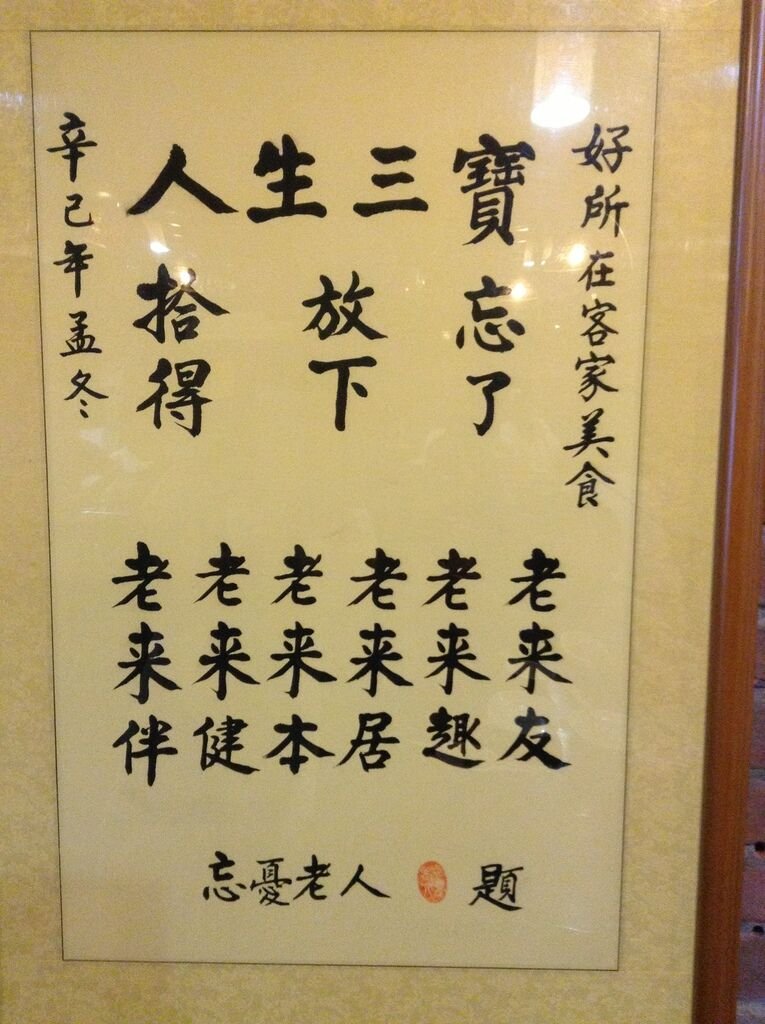 好所在客家美食
人生三寶
捨得
放下
忘了
老来伴
老来健
老来本
老来居
老来趣
老来友
忘憂老人 題
辛已年孟冬